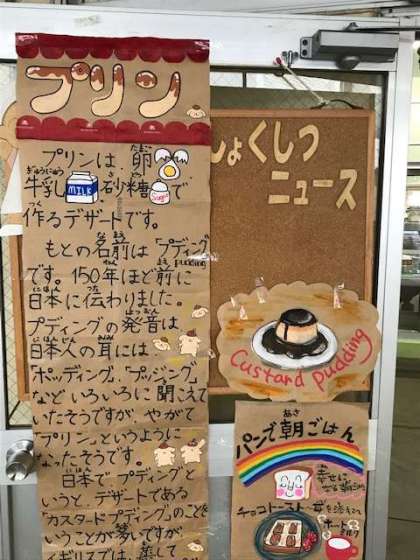 プリン
プリンは、卵
たまご
牛乳
ぎゅうにゅう
MILK
、砂糖
さとう
Sugar
で
作るデザートです。
つく
もとの名前は「プディング」
なまえ
pudding
です。150年ほど前に
ねん
まえ
日本に伝わりました。
にほん
つた
プディングの発音は
はつおん
日本人の耳には
にほんじん
みみ
「ポッディング」、「プッジング」
などいろいろに聞こえて
き
いたそうですが、やがて
「プリン」というように
なったそうです。
日本で プディングと
にほん
いうと、デザートである
「カスタードプディング」のことを
いうことが多いですが、
おお
イギリスでは、蒸して
む
しょくしつ
ニュース
Custard pudding
パンで朝ごはん
あさ
幸せに
チョコトースト